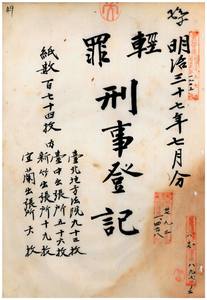 明治三十七年七月分
輕罪
刑事登記
臺北地方法院九十三枚
臺中出張所五十六枚
紙數百七十四枚 内 新竹出張所十九枚
宜蘭出張所六枚